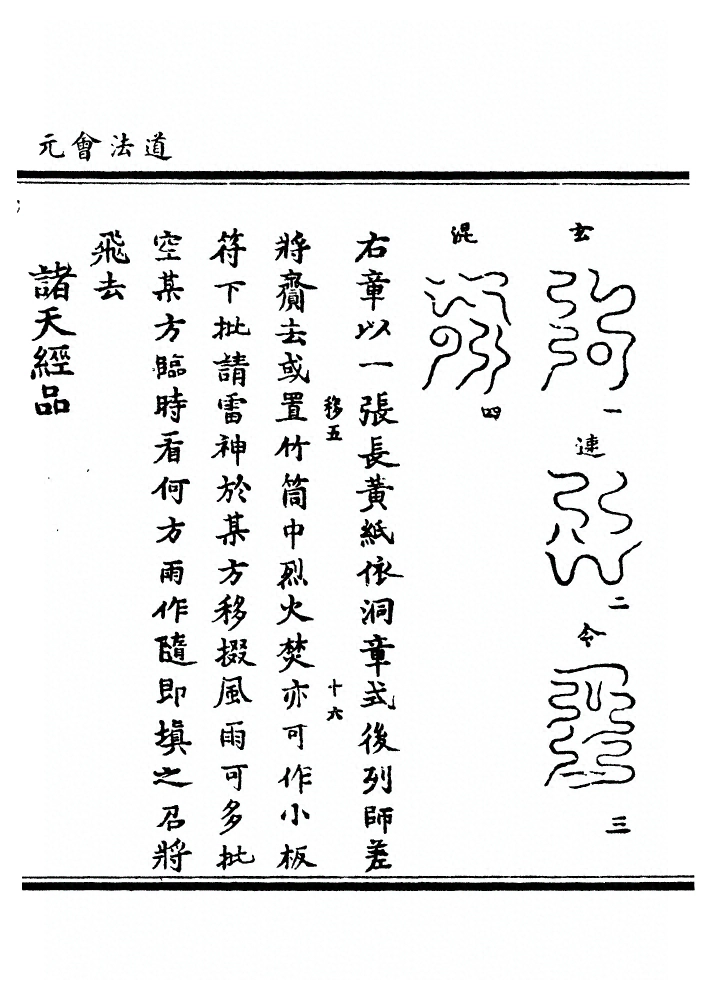 道法會元
玄
一
速
二
令
三
混
四
右章以一張長黃紙依洞章式後列師差
移五
十六
將齎去或置竹筒中烈火焚亦可作小板
符下批請雷神於某方移掇風雨可多批
空某方臨時看何方雨作隨即填之召將
飛去
諸天經品